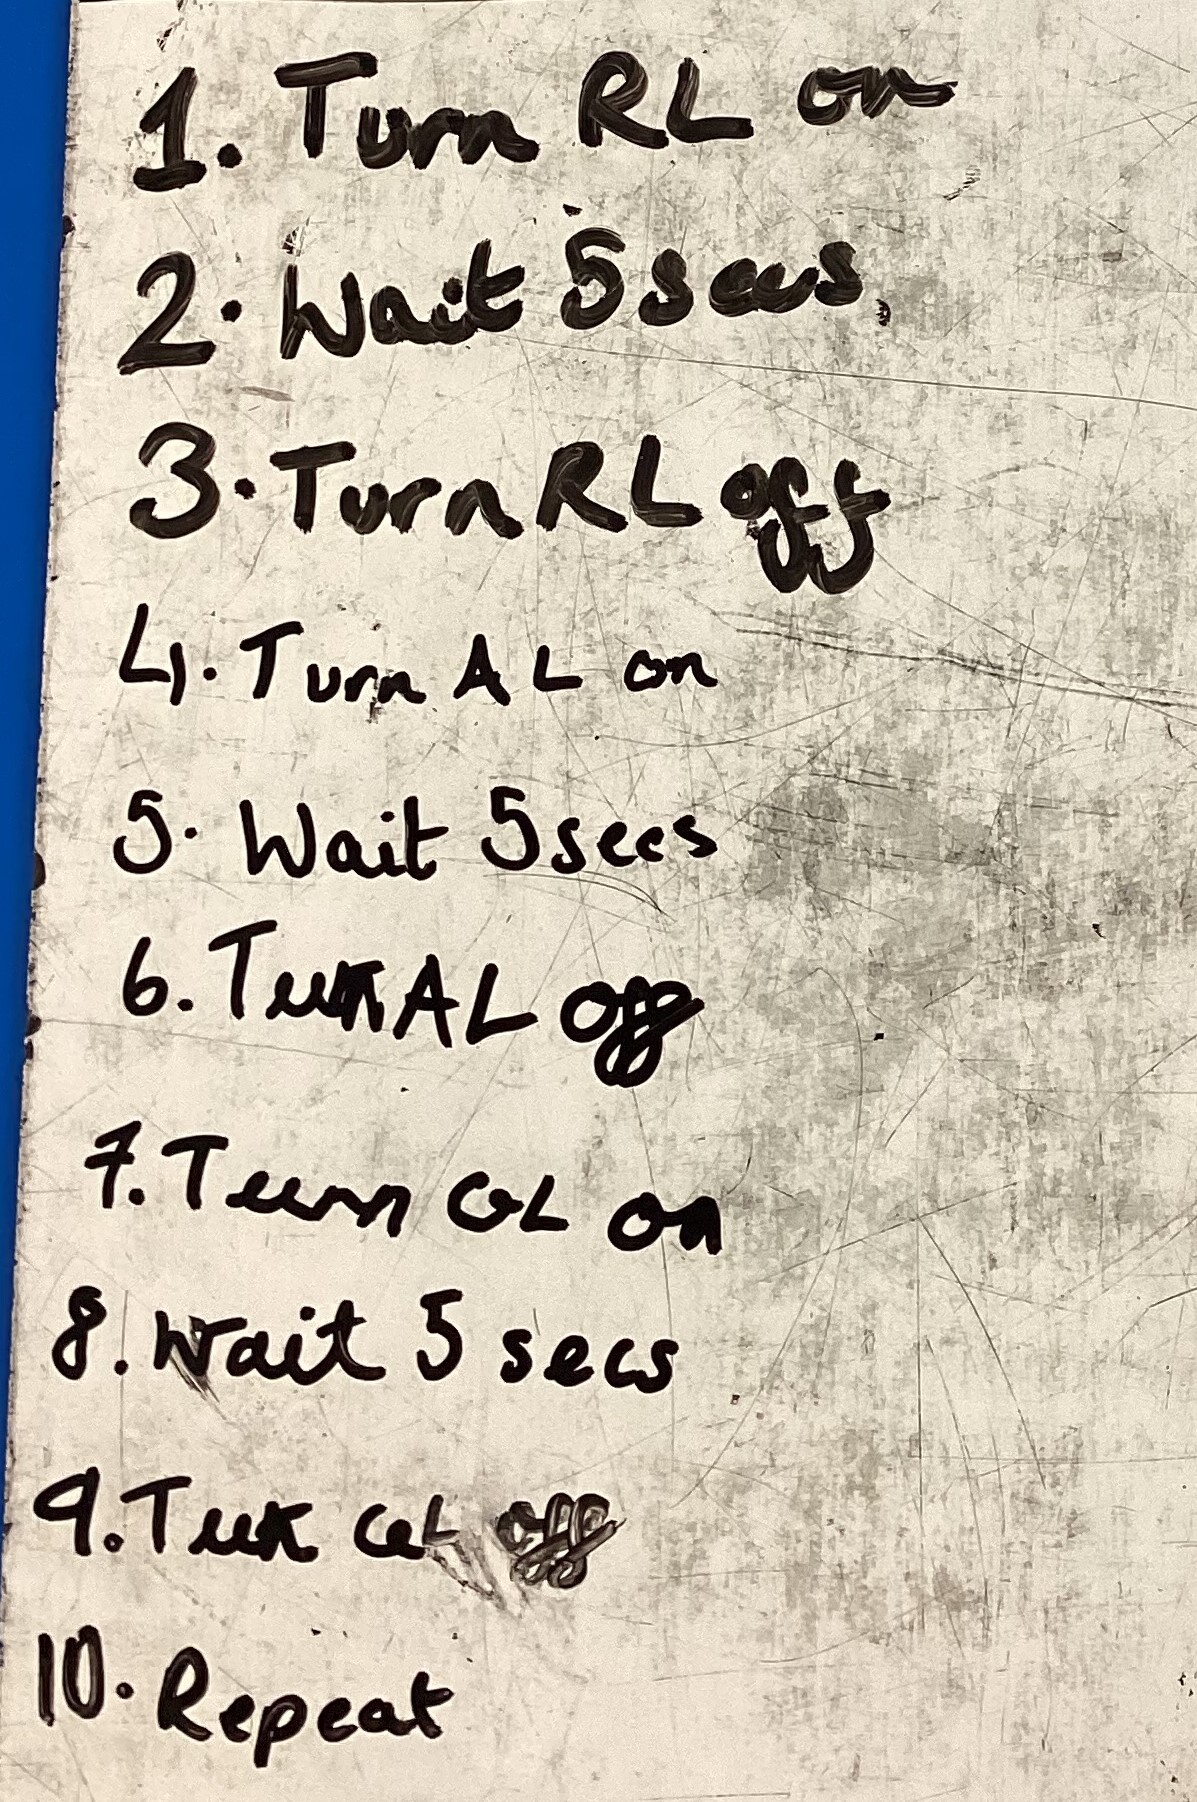 1. Turn RL on
2. Wait 5 secs.
3. Turn RL off
4. Turn AL on
5. Wait 5 secs
6. Turn AL off
7. Turn GL on
8. Wait 5 secs
9. Turn GL off
10. Repeat